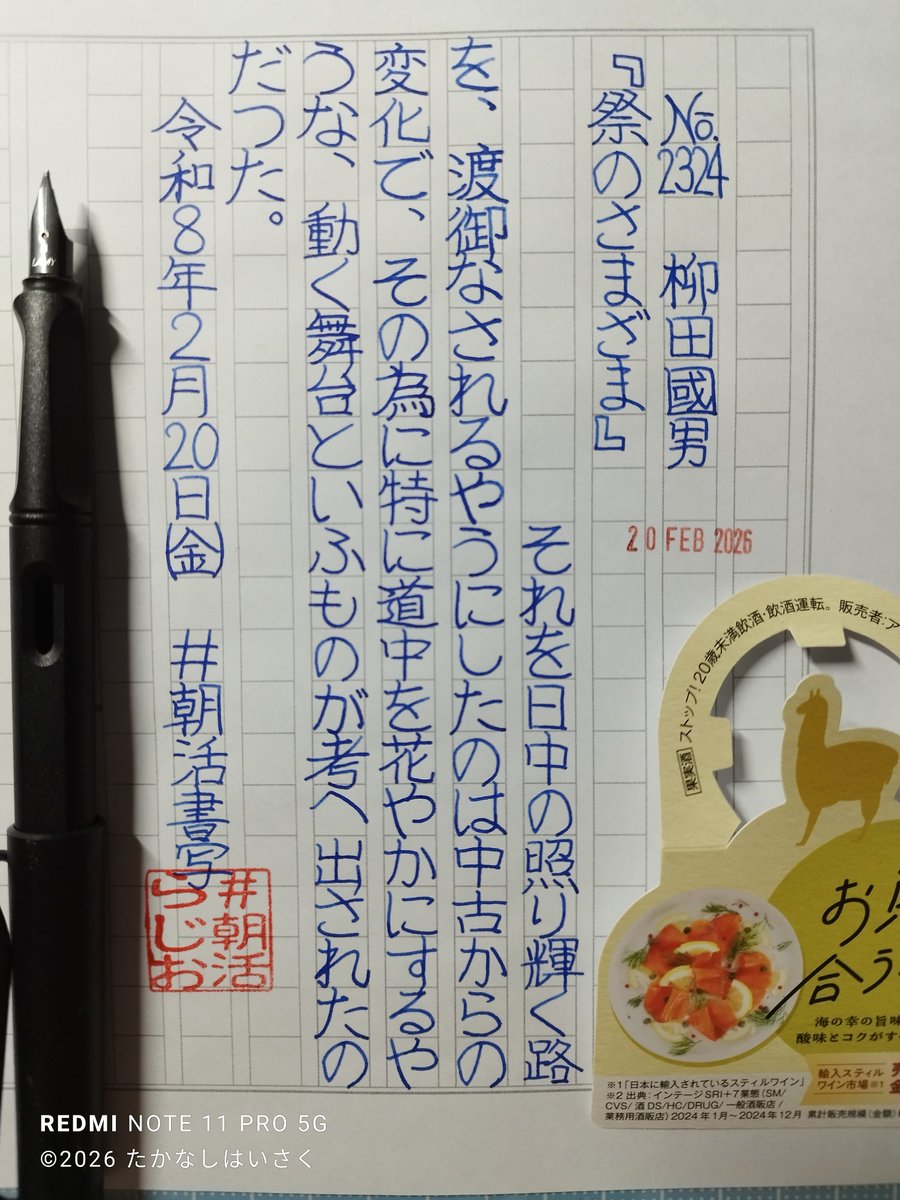 No.2324 柳田國男
『祭のさまざま』
それを日中の照り輝く路
を、渡御なされるやうにしたのは中古からの
変化で、その為に特に道中を花やかにするや
うな、動く舞台といふものが考へ出されたの
だつた。
令和8年2月20日(金) #朝活書写
#朝活
らじお
20 FEB 2026
LAMY
果実酒 ストップ!20歳未満飲酒・飲酒運転。販売者:ア
お
合う
海の幸の旨味
酸味とコクがす
輸入スティル
ワイン市場※1
※1「日本に輸入されているスティルワイン」
※2 出典:インテージSRI+7業態(SM/
CVS/酒DS/HC/DRUG/一般酒販店/
業務用酒販店)2024年1月〜2024年12月 累計販売規模(金額)
REDMI NOTE 11 PRO 5G
©2026 たかなしはいさく